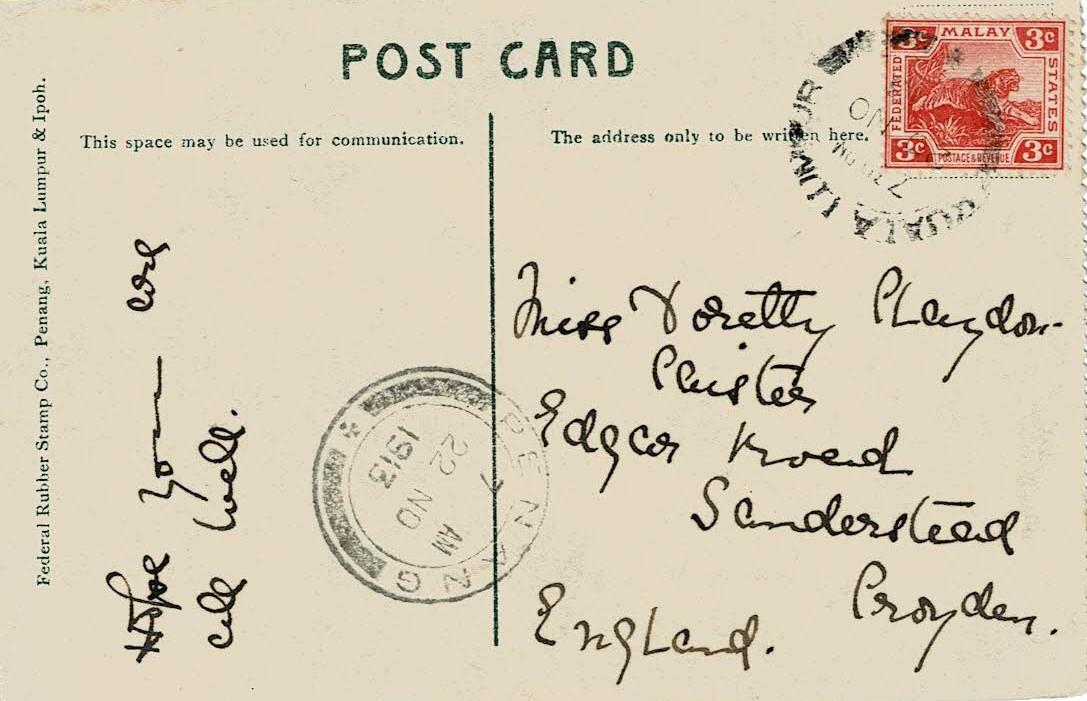 POST CARD
This space may be used for communication.
The address only to be written here.
Federal Rubber Stamp Co., Penang, Kuala Lumpur & Ipoh.
MALAY
FEDERATED
STATES
3c 3c
3c 3c
POSTAGE & REVENUE
KUALA LUMPUR
NO
PENANG
7 AM
22 NO
1913
Hope you are
all well.
Miss Doretty Playdon
Edgar Road
Sanderstead
Croydon.
England.